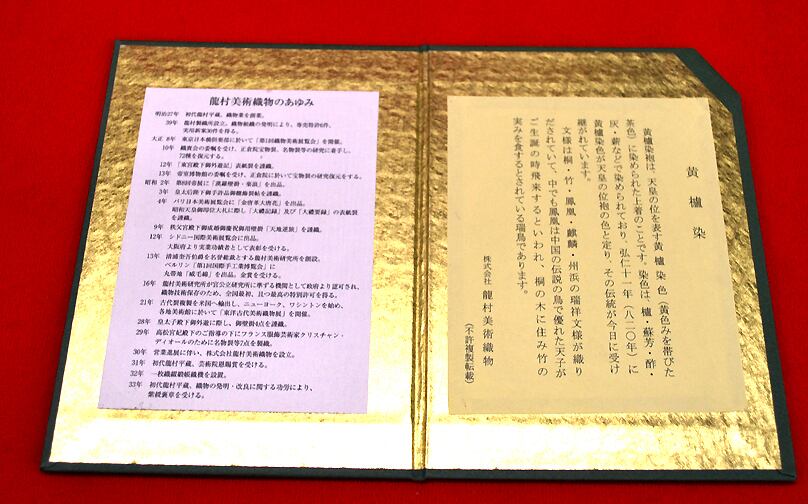 龍村美術織物のあゆみ
明治27年 初代龍村平蔵、織物業を創業。
39年 龍村製織所設立。織物組織の発明により、専売特許6件、
実用新案30件を得る。
大正 8年 東京日本橋倶楽部に於いて「第1回織物美術展覧会」を開催。
10年 織寳会の委嘱を受け、正倉院宝物裂、名物裂等の研究に着手し、
72種を復元する。
12年 「東宮殿下御外遊記」表紙裂を謹織。
13年 帝室博物館の委嘱を受け、正倉院に於いて宝物裂の研究復元をする。
昭和 2年 第8回帝展に「漢羅壁掛・楽浪」を出品。
3年 皇太后陛下御手許品御雛飾装帖を謹織。
4年 パリ日本美術展覧会に「金唐革大唐花」を出品。
昭和天皇御即位大礼に際し「大禮記録」及び「大禮要録」の表紙裂
を謹織。
9年 秩父宮殿下御成婚御慶祝御用壁掛「天地逆旅」を謹織。
12年 シドニー国際美術展覧会に出品。
大阪府より実業功績者として表彰を受ける。
13年 清浦奎吾伯爵を名誉総裁とする龍村織物美術研究所を創設。
ベルリン「第1回国際手工業博覧会」に
丸帯地「威毛錦」を出品。金賞を受ける。
16年 龍村美術研究所が官公立研究所に準ずる機関として政府より認可され、
織物技術保存のため、全国最初、且つ最高の特別許可を得る。
21年 古代裂複製を米国へ輸出し、ニューヨーク、ワシントンを始め、
各地美術館に於いて「東洋古代美術織物展」を開催。
28年 皇太子殿下御外遊に際し、御壁掛4点を謹織。
29年 高松宮妃殿下のご指導の下にフランス服飾芸術家クリスチャン・
ディオールのために名物裂等7点を製織。
30年 営業進展に伴い、株式会社龍村美術織物を設立。
31年 初代龍村平蔵、芸術院恩賜賞を受ける。
32年 一枚織綴緞帳織機を設置。
33年 初代龍村平蔵、織物の発明・改良に関する功労により、
紫綬褒章を受ける。
黄櫨染
黄櫨染袍は、天皇の位を表す黄櫨色(黄色みを帯びた
茶色)に染められた上着のことです。染色は、櫨 蘇芳・酢・
灰・薪などで染められており、弘仁十一年(八二〇年)に
黄櫨染色が天皇の位袍の色と定り、その伝統が今日に受け
継がれています。
文様は桐・竹・鳳凰・麒麟・州浜の瑞祥文様が織り
だされていて、中でも鳳凰は中国の伝説の鳥で優れた天子が
ご生誕の時飛来するといわれ、桐の木に住み竹の
実みを食するとされている瑞鳥であります。
株式会社 龍村美術織物
(不許複製転載)